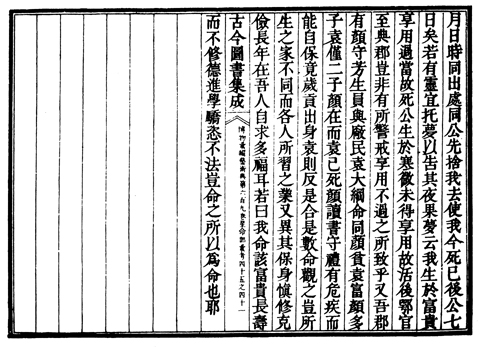 月日時同出處同公先捨我去使我今死已後公七
日矣若有靈宜托夢以告其夜果夢云我生於富貴
享用過當故死公生於寒微未得享用故活後鄂官
至典郡豈非有所警戒享用不過之所致乎又吾郡
有顏守芳生員與廠民袁大綱命同顏貧袁富顏多
子袁僅二子顏在而袁已死顏讀書守禮有危疾而
能自保竟歲貢出身袁則反是合是數命觀之豈所
生之家不同而各人所習之業又異其保身慎修克
儉長年在吾人自求多福耳若曰我命該富貴長壽
古今圖書集成
博物彙編藝術典第六百九卷星命部彙考四十五之四十一
而不修德進學驕恣不法豈命之所以為命也耶